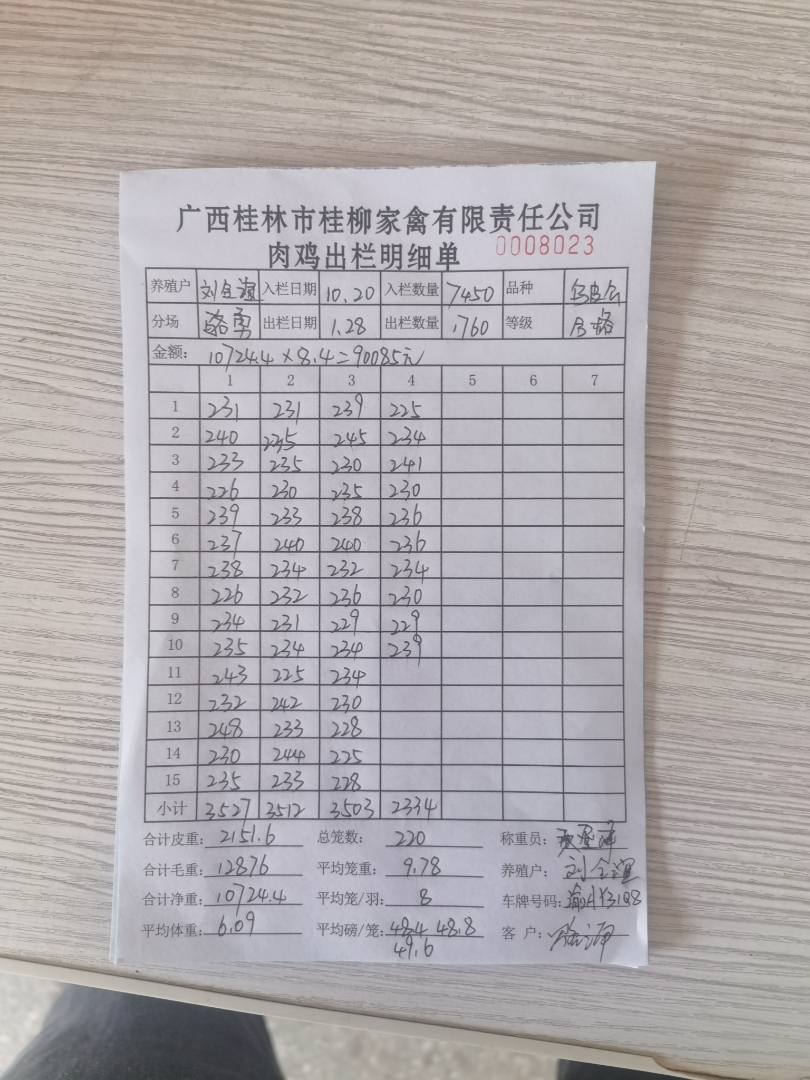 广西桂林市桂柳家禽有限责任公司
肉鸡出栏明细单 0008023
养殖户 刘全谊 入栏日期 10.20 入栏数量 7450 品种
分场 骆勇 出栏日期 1.28 出栏数量 1760 等级
金额: 10724.4×8.4=90085元
1 2 3 4 5 6 7
1 231 231 239 225
2 240 235 245 234
3 233 235 230 241
4 226 230 235 230
5 239 233 238 236
6 237 240 240 236
7 238 234 232 234
8 226 232 236 230
9 234 231 229 229
10 235 234 234 239
11 243 225 234
12 232 242 230
13 248 233 228
14 230 244 225
15 235 233 228
小计 3527 3512 3503 2334
合计皮重: 2151.6 总笼数: 220 称重员:
合计毛重: 12876 平均笼重: 9.78 养殖户: 刘全谊
合计净重: 10724.4 平均笼/羽: 8 车牌号码:
平均体重: 6.09 平均磅/笼: 48.4 48.8 客 户:
49.6